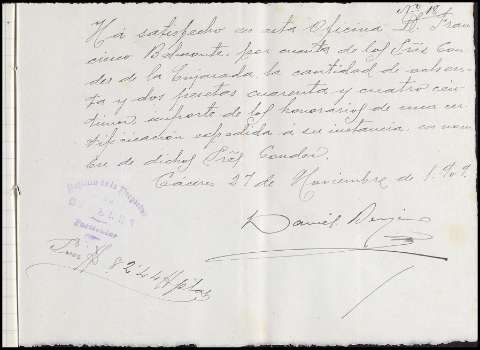 Nº 19
Há satisfecho en esta Oficina D. Fran-
cisco Belmonte, por cuenta de los Sres Con-
des de la Enjarada, la cantidad de ochen-
ta y dos pesetas cuarenta y cuatro cén-
timos, importe de los honorarios de una cer-
tificación expedida á su instancia, en nom-
bre de dichos Sres Condes.
Cáceres 27 de Noviembre de 1.909.
Registro de la Propiedad
Daniel
Son 82'44 ptas